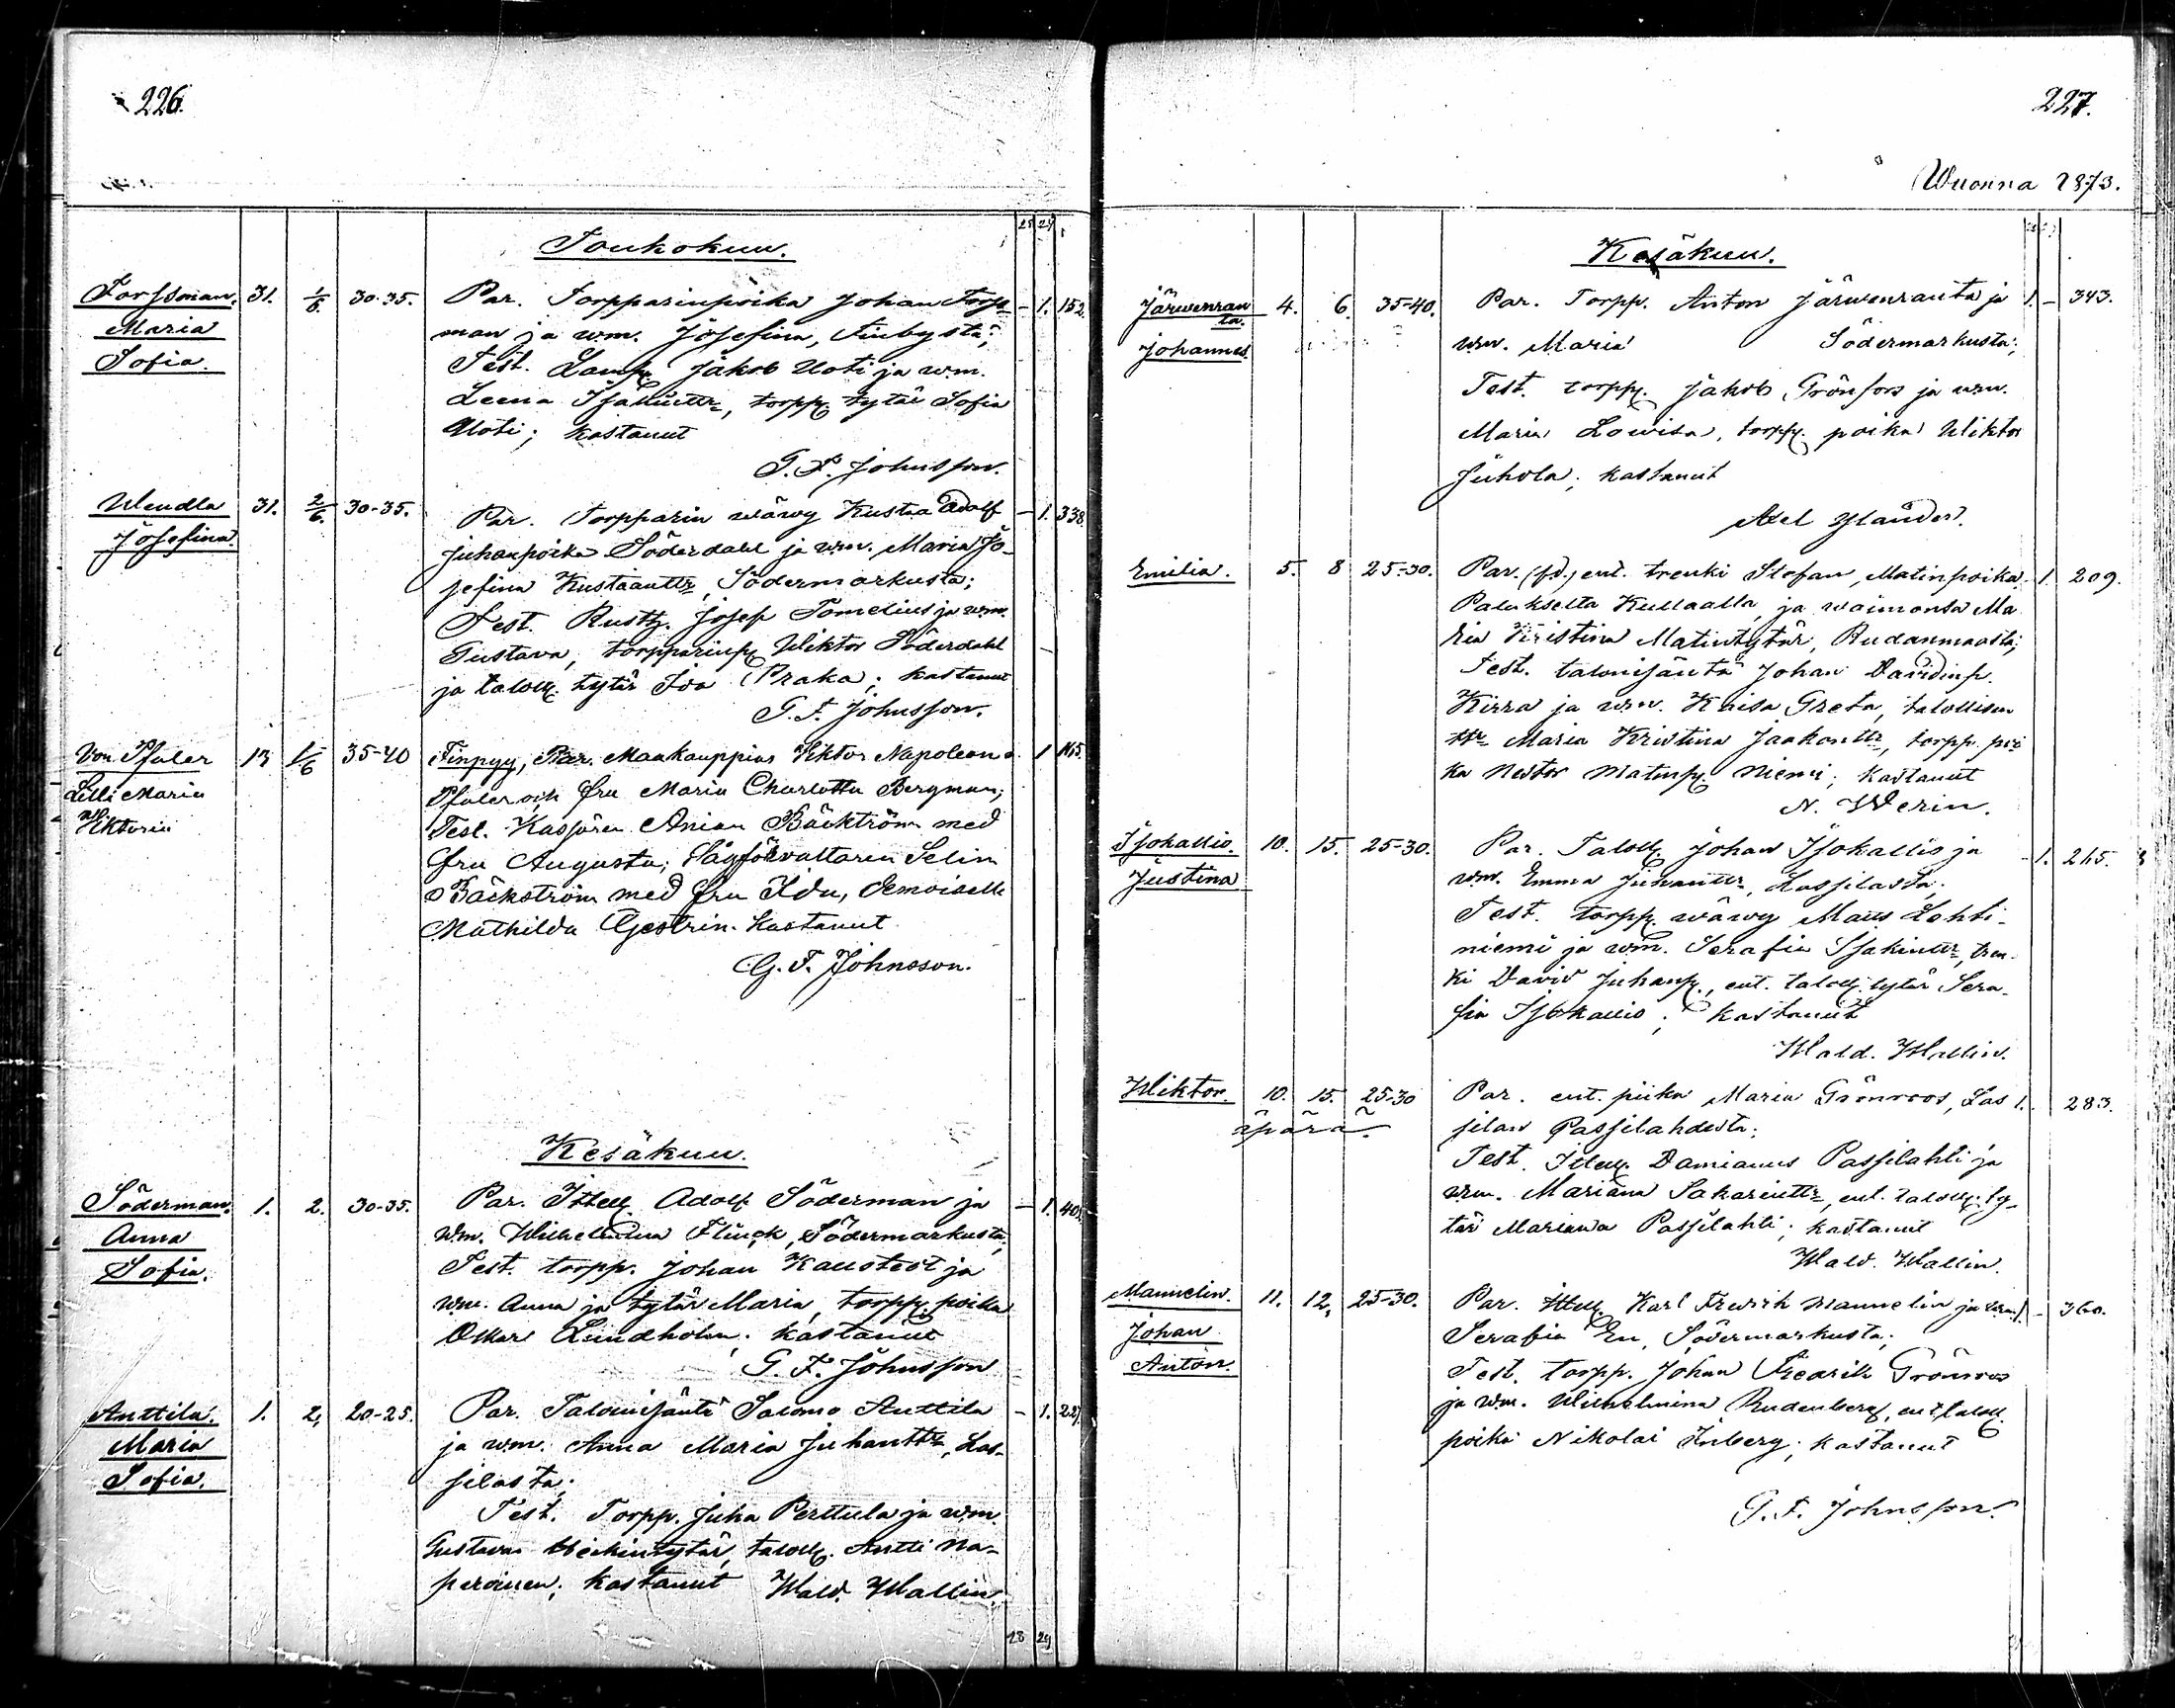 226.
25 29
Toukokuu.
Forssman. 31. 1/6. 30-35. Par. Torpparinpoika Johan Forss- - 1. 152.
Maria man ja wm. Josefina, Finbystä;
Sofia. Test. Lamp. Jakob Uoti ja wm.
Leena Isakintr, torpp. tytär Sofia
Uoti; kastanut
G. F. Johnsson.
Wendla 31. 2/6. 30-35. Par. Torpparin wäwy Kustaa Adolf - 1. 338.
Josefina. Juhanpoika Söderdahl ja wm. Maria Jo-
sefina Kustaantr, Södermarkusta;
Test. Rusth. Josef Tomelius ja wm.
Gustava, torpparinp. Wiktor Söderdahl
ja taloll. tytär Ida Praka; kastanut
G. F. Johnsson.
Von Pfaler 35-40 Finpyy, Par. Maakauppias Viktor Napoleon v. 1
Lilli Maria Pfaler och fru Maria Charlotta Bergman;
Viktoria Test. Kassören Anian Bäckström med
fru Augusta; Sågförvaltaren Selim
Bäckström med fru Ida, demoiselle
Mathilda Gestrin. Kastanut
G. F. Johnsson.
Kesäkuu.
Söderman. 1. 2. 30-35. Par. Itsell. Adolf Söderman ja - 1.
Anna wm. Wilhelmina Flinck, Södermarkusta;
Sofia. Test. torpp. Johan Kaustest ja
wm. Anna ja tytär Maria, torpp. poika
Oskar Lindholm; kastanut
G. F. Johnsson
Anttila. 1. 2. 20-25. Par. Talonisäntä Salomo Anttila - 1. 227.
Maria ja wm. Anna Maria Juhantr, Las-
Sofia. silasta;
Test. Torpp. Juha Perttula ja wm.
Gustava Heikintytär, taloll. Antti Na-
peroinen; kastanut Wald. Wallin.
28 29
227.
Wuonna 1873.
Kesäkuu.
Järwenran 4. 6. 35-40. Par. Torpp. Anton Järwenranta ja 1. - 343.
ta.
Johannes. wm. Maria Södermarkusta;
Test. torpp. Jakob Grönfors ja wm.
Maria Lowisa, torpp. poika Wiktor
Juhola; kastanut
Axel Ylander.
Emilia. 5. 8. 25-30. Par. (fd.) ent. trenki Stefan Matinpoika 1. 209.
Palukselta Kullaalla ja waimonsa Ma
ria Kristina Matintytär, Rudanmaasta;
Test. talonisäntä Johan Davidinp.
Kirra ja wm. Kaisa Greta, talollisen
ttr Maria Kristina Jaakontr, torpp. poi
ka Nestor Matinp. Niemi; kastanut
N. Werin.
Isokallio. 10. 15. 25-30. Par. Taloll. Johan Isokallio ja - 1. 265.
Justina wm. Emma Juhantr, Lassilasta;
Test. torpp. wäwy Maus Lehti-
niemi ja wm. Serafia Isakintr, tren-
ki David Juhanp., ent. taloll. tytär Sera-
fia Isokallio; kastanut
Wald. Wallin.
Wiktor. 10. 15. 25-30 Par. ent. piika Maria Grönroos, Las 1. 283.
äpärä. silan Passilahdesta;
Test. Itsell. Damianus Passilahti ja
wm. Mariana Sakarintr, ent. taloll. ty-
tär Mariana Passilahti; kastanut
Wald. Wallin.
Mannelin. 11. 12. 25-30. Par. Itsell. Karl Fredrik Mannelin ja wm. 1. - 360.
Johan Serafia En, Södermarkusta;
Anton. Test. torpp. Johan Fredrik Grönroos
ja wm. Wilhelmina Rudenberg, ent. taloll.
poika Nikolai Inberg; kastanut
G. F. Johnsson.